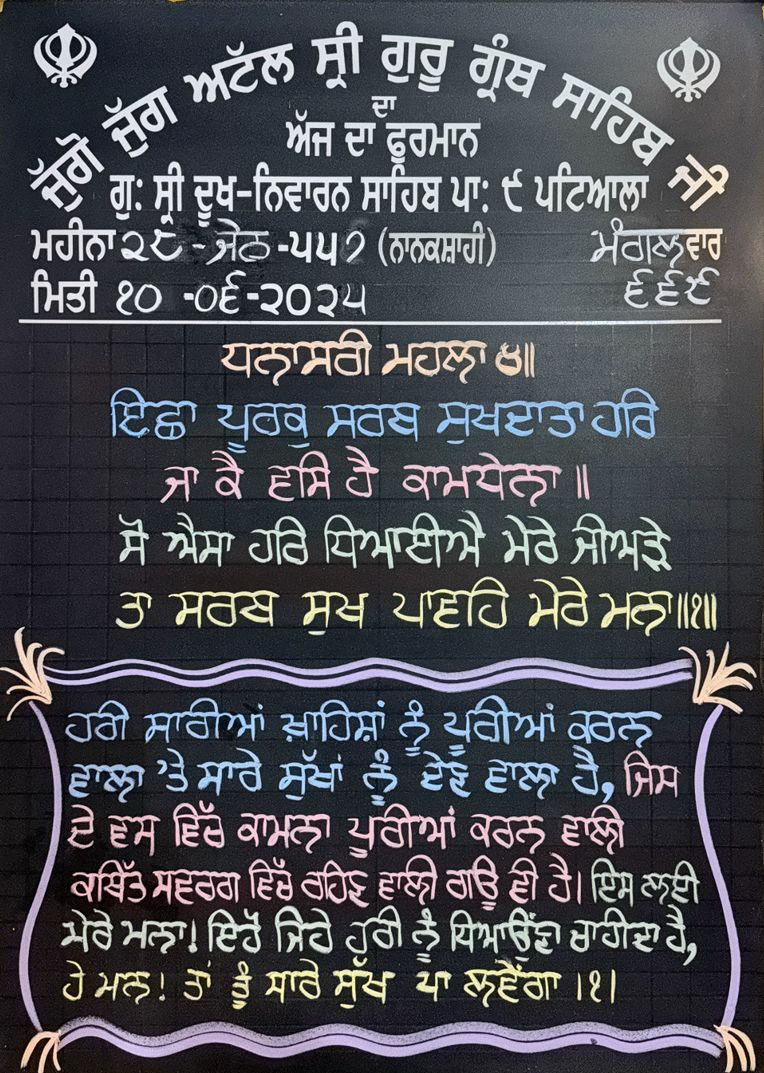 ਜੁੱਗੋ ਜੁੱਗ ਅਟੱਲ ਸ੍ਰੀ ਗੁਰੂ ਗ੍ਰੰਥ ਸਾਹਿਬ ਜੀ
ਦਾ
ਅੱਜ ਦਾ ਫੁਰਮਾਨ
ਗੁ: ਸ੍ਰੀ ਦੂਖ-ਨਿਵਾਰਨ ਸਾਹਿਬ ਪਾ: ੯ ਪਟਿਆਲਾ
ਮਹੀਨਾ ੨੮ -ਜੇਠ -੫੫੭ (ਨਾਨਕਸ਼ਾਹੀ) ਮੰਗਲਵਾਰ
ਮਿਤੀ ੧੦ -੦੬-੨੦੨੫ ੬੬੯
ਧਨਾਸਰੀ ਮਹਲਾ ੪॥
ਇਛਾ ਪੂਰਕੁ ਸਰਬ ਸੁਖਦਾਤਾ ਹਰਿ
ਜਾ ਕੈ ਵਸਿ ਹੈ ਕਾਮਧੇਨਾ ॥
ਸੋ ਐਸਾ ਹਰਿ ਧਿਆਈਐ ਮੇਰੇ ਜੀਅੜੇ
ਤਾ ਸਰਬ ਸੁਖ ਪਾਵਹਿ ਮੇਰੇ ਮਨਾ॥੧॥
ਹਰੀ ਸਾਰੀਆਂ ਖ਼ਾਹਿਸ਼ਾਂ ਨੂੰ ਪੂਰੀਆਂ ਕਰਨ
ਵਾਲਾ 'ਤੇ ਸਾਰੇ ਸੁੱਖਾਂ ਨੂੰ ਦੇਣ ਵਾਲਾ ਹੈ, ਜਿਸ
ਦੇ ਵਸ ਵਿੱਚ ਕਾਮਨਾ ਪੂਰੀਆਂ ਕਰਨ ਵਾਲੀ
ਕਥਿੱਤ ਸਵਰਗ ਵਿੱਚ ਰਹਿਣ ਵਾਲੀ ਗਊ ਵੀ ਹੈ। ਇਸ ਲਈ
ਮੇਰੇ ਮਨਾ! ਇਹੋ ਜਿਹੇ ਹਰੀ ਨੂੰ ਧਿਆਉਂਣਾ ਚਾਹੀਦਾ ਹੈ,
ਹੇ ਮਨ! ਤਾਂ ਤੂੰ ਸਾਰੇ ਸੁੱਖ ਪਾ ਲਵੇਂਗਾ ।੧।